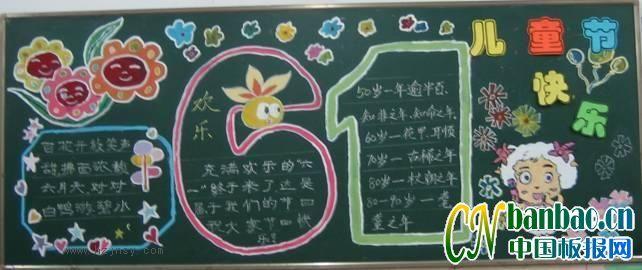 儿童节
快乐
欢
乐
百花开放笑声
甜拂面歌颜
六月天对对
白鸭游碧小
充满欢乐的"六
一"终于来了这是
属于我们的节日
祝大家节日快
乐!
50岁一年逾半百、
知非之年、知命之年
60岁一花甲、耳顺
70岁一古稀之年
80岁一杖朝之年
80-90岁一耄
耋之年
CN banbao.cn
中国板报网